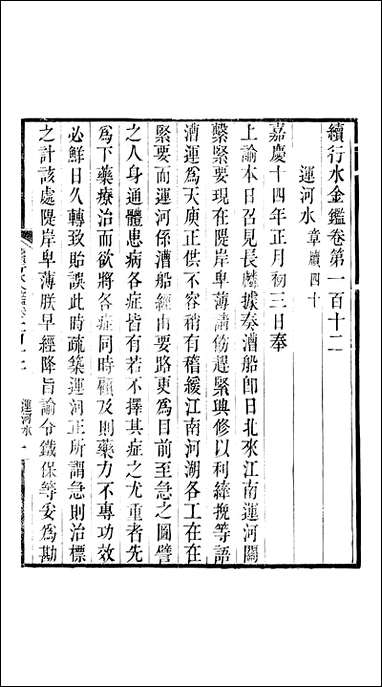 續行水金鑑卷第一百十二
運河水章牘四十
嘉慶十四年正月初三日奉
上諭本日召見長麟據奏漕船卽日北來江南運河關
繫緊要現在隄岸卑薄請飭趕緊興修以利縴挽等語
漕運爲天庾正供不容稍有稽緩江南河湖各工在在
緊要而運河係漕船經由要路更爲目前至急之圖譬
之人身通體患病各症皆有若不擇其症之尤重者先
爲下藥療治而欲將各症同時顧及則藥力不專功效
必鮮日久轉致貽誤此時疏築運河正所謂急則治標
之計該處隄岸卑薄朕早經降旨諭令鐵保等妥爲勘
運河水
一